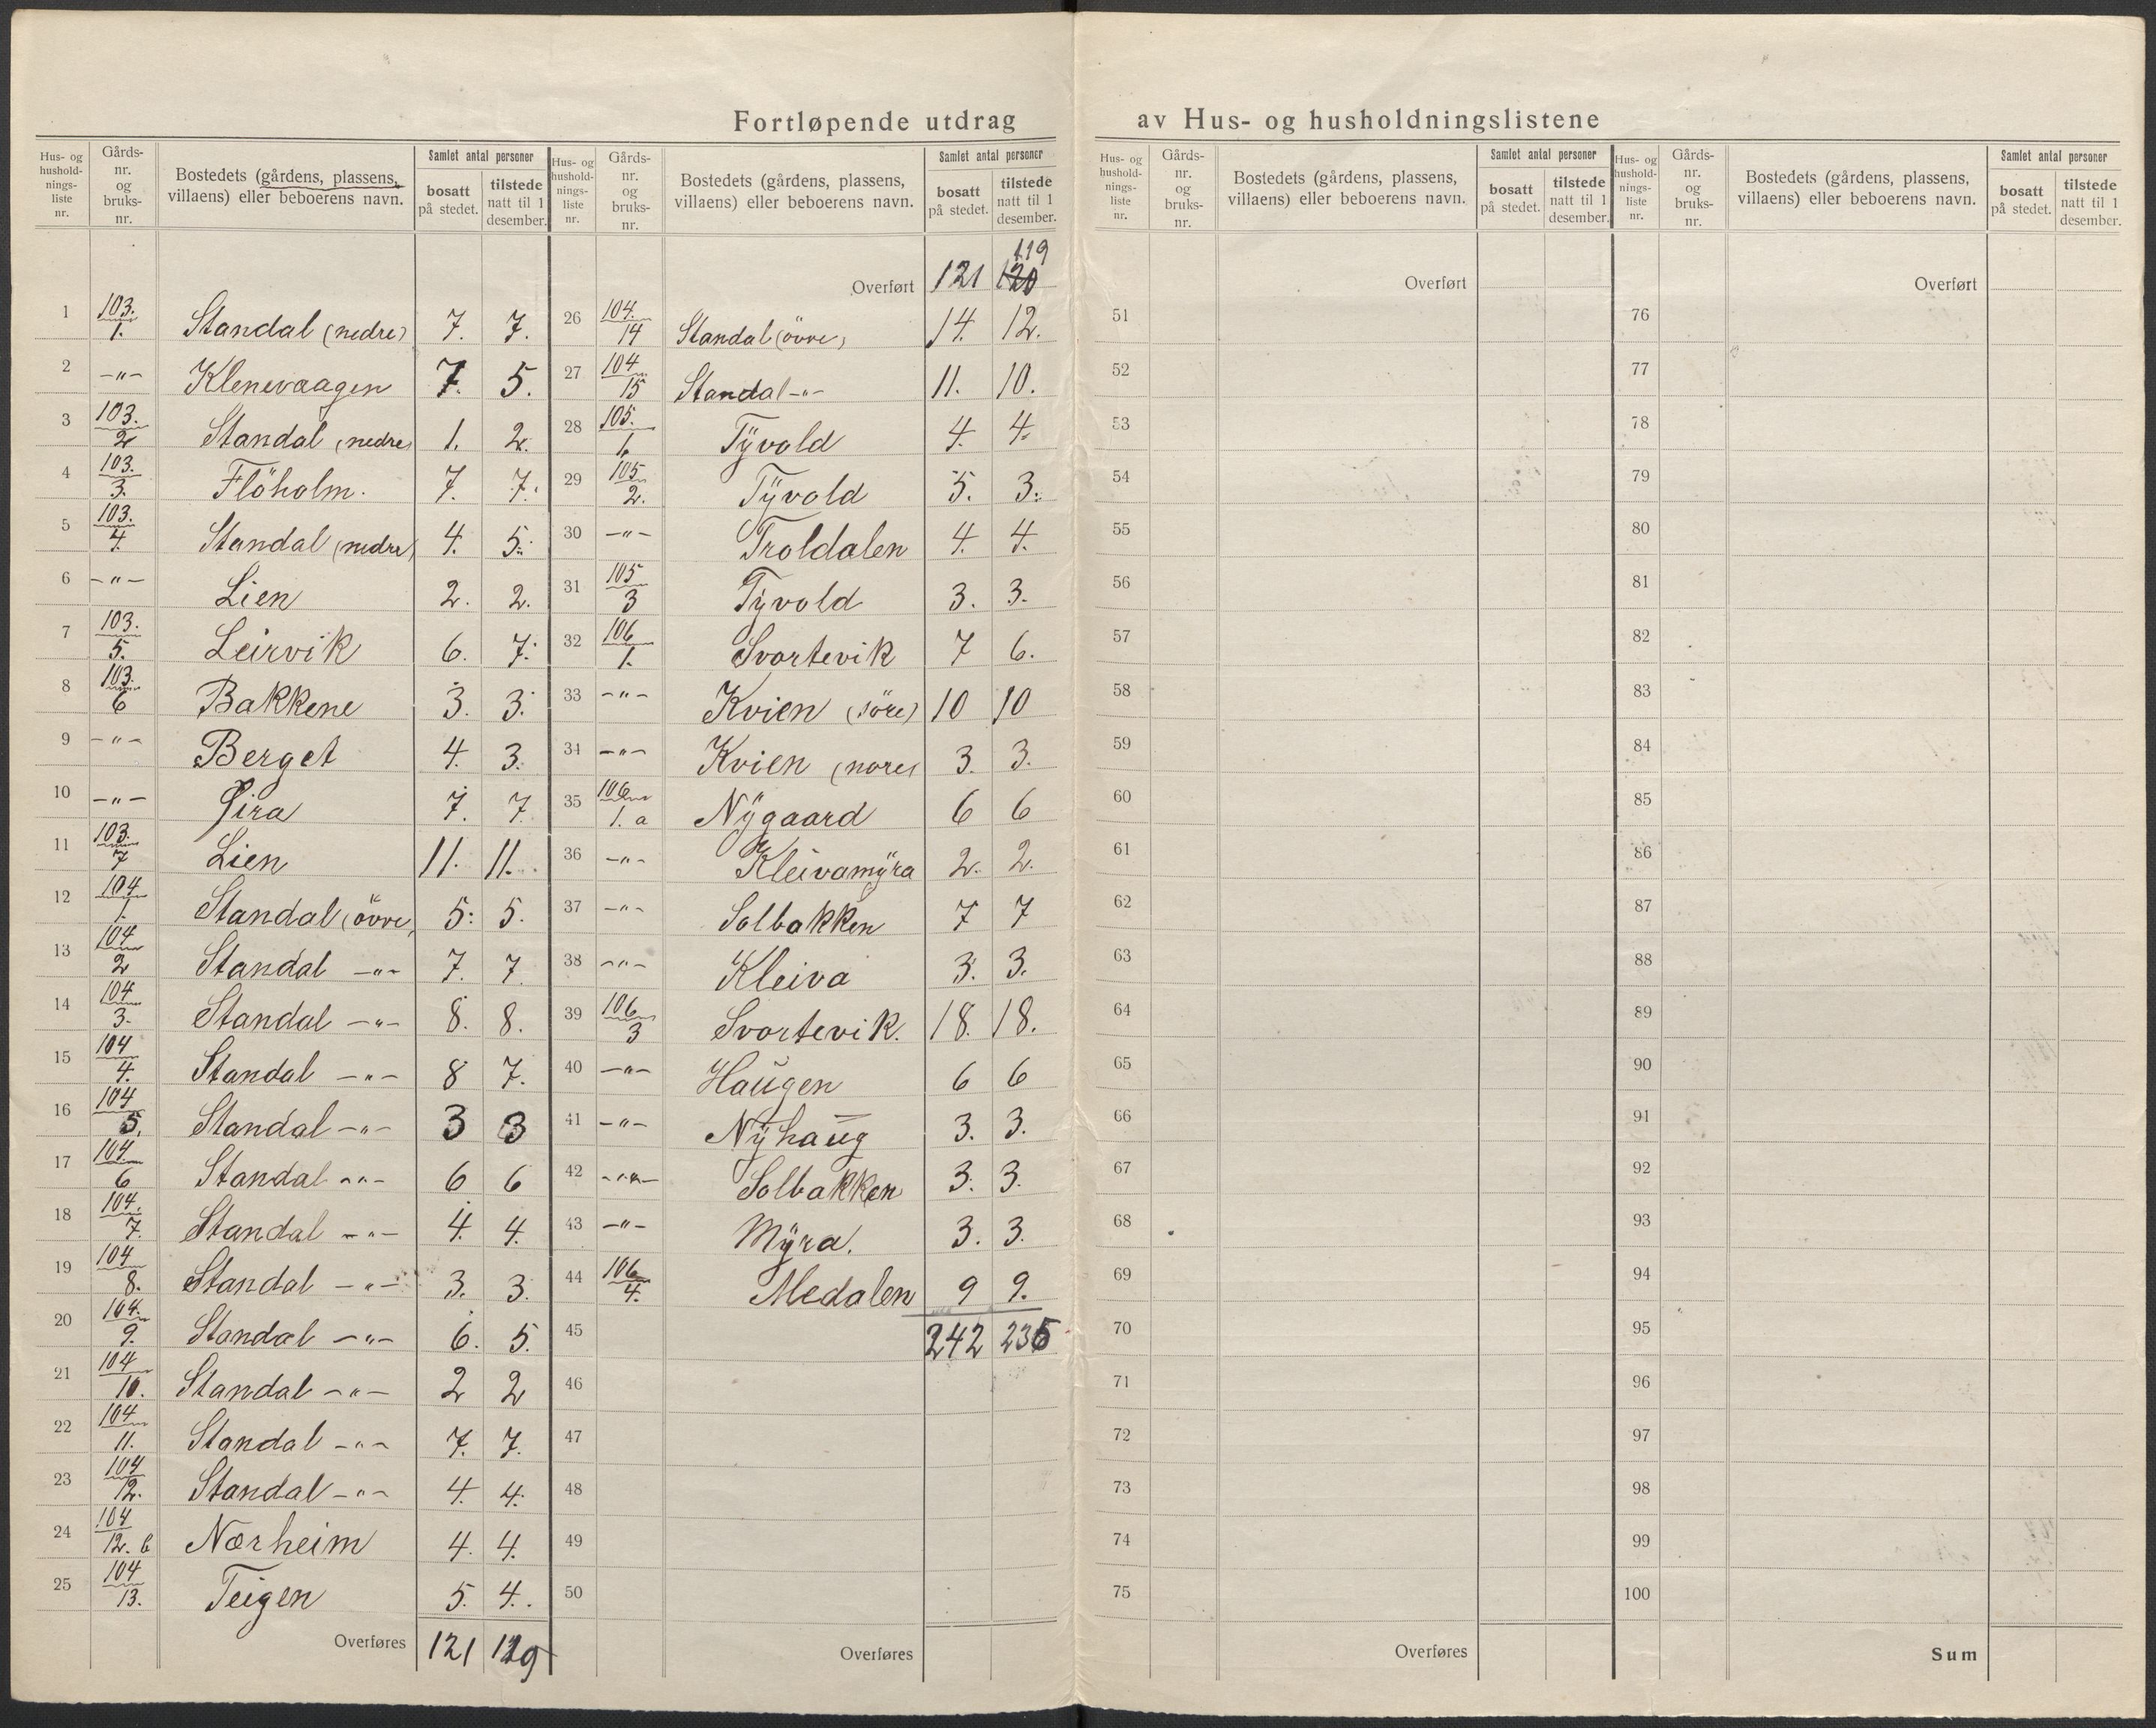 Fortløpende utdrag av Hus- og husholdningslistene
Hus- og husholdnings-liste nr. Gårds-nr. og bruks-nr. Bostedets (gårdens, plassens, villaens) eller beboerens navn. Samlet antal personer bosatt på stedet. tilstede natt til 1 desember.
1 103./1. Standal (nedre) 7. 7.
2 -"- Klenevaagen 7. 5.
3 103./2 Standal (nedre) 1. 2.
4 103./3. Flöholm. 7. 7.
5 103./4. Standal (nedre) 4. 5.
6 -"- Lien 2. 2.
7 103./5. Leirvik 6. 7.
8 103./6 Bakkene 3. 3.
9 -"- Berget 4. 3.
10 -"- Øira 7. 7.
11 103./7 Lien 11. 11.
12 104/1. Standal (övre) 5. 5.
13 104/2 Standal -"- 7. 7.
14 104/3. Standal -"- 8. 8.
15 104/4. Standal -"- 8 7.
16 104/5. Standal -"- 3 3
17 104./6 Standal -"- 6 6
18 104./7. Standal -"- 4. 4.
19 104/8. Standal -"- 3. 3.
20 104./9. Standal -"- 6. 5.
21 104/10. Standal -"- 2 2
22 104/11. Standal -"- 7. 7.
23 104/12. Standal -"- 4. 4.
24 104/12. b Nærheim 4. 4.
25 104/13. Teigen 5. 4.
Overføres 121 119
Hus- og husholdnings-liste nr. Gårds-nr. og bruks-nr. Bostedets (gårdens, plassens, villaens) eller beboerens navn. Samlet antal personer bosatt på stedet. tilstede natt til 1 desember.
119
Overført 121 120
26 104./14 Standal (övre) 14. 12.
27 104/15 Standal -"- 11. 10.
28 105./1. Tÿvold 4. 4.
29 105/2. Tÿvold 5. 3.
30 -"- Troldalen 4. 4.
31 105/3 Tÿvold 3. 3.
32 106/1. Svortevik 7 6.
33 -"- Kvien (söre) 10 10
34 -"- Kvien (nore) 3. 3.
35 106/1. a Nÿgaard 6 6
36 -"- Kleivamÿra 2. 2.
37 -"- Solbakken 7 7
38 -"- Kleiva 3. 3.
39 106/3 Svortevik. 18. 18.
40 -"- Haugen 6 6
41 -"- Nÿhaug 3. 3.
42 -"- Solbakken 3. 3.
43 -"- Mÿra. 3. 3.
44 106/4. Medalen 9 9.
45 242 235
46
47
48
49
50
Overføres
Hus- og husholdnings-liste nr. Gårds-nr. og bruks-nr. Bostedets (gårdens, plassens, villaens) eller beboerens navn. Samlet antal personer bosatt på stedet. tilstede natt til 1 desember.
Overført
51
52
53
54
55
56
57
58
59
60
61
62
63
64
65
66
67
68
69
70
71
72
73
74
75
Overføres
Hus- og husholdnings-liste nr. Gårds-nr. og bruks-nr. Bostedets (gårdens, plassens, villaens) eller beboerens navn. Samlet antal personer bosatt på stedet. tilstede natt til 1 desember.
Overført
76
77
78
79
80
81
82
83
84
85
86
87
88
89
90
91
92
93
94
95
96
97
98
99
100
Sum